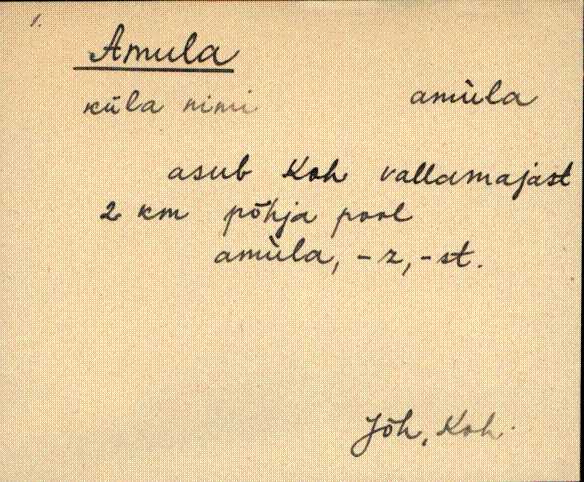 1.
Amula
küla nimi amùla
asub Koh vallamajast
2 km põhja pool
amùla, -z, -st.
Jõh, Koh.